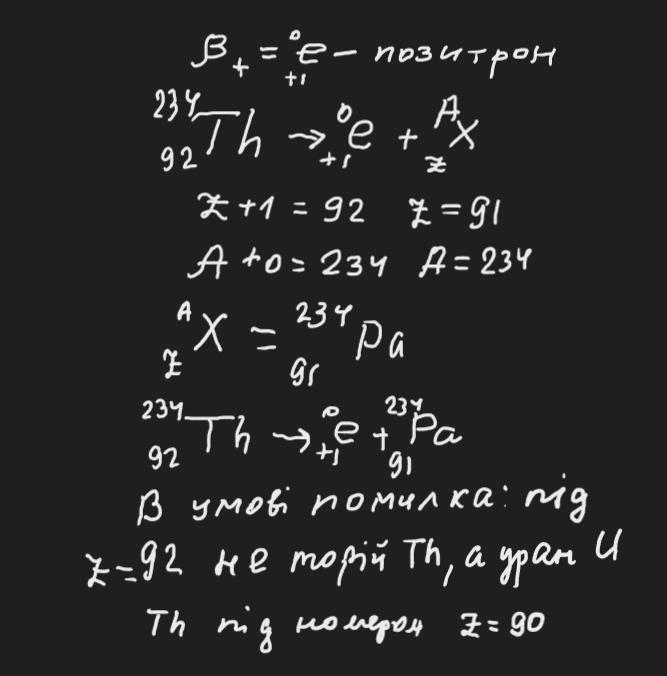 β₊ = ⁰₊₁e – позитрон
²³⁴₉₂Th → ⁰₊₁e + ᴬ_Z X
Z + 1 = 92 Z = 91
A + 0 = 234 A = 234
ᴬ_Z X = ²³⁴₉₁Pa
²³⁴₉₂Th → ⁰₊₁e + ²³⁴₉₁Pa
В умові помилка: під
Z = 92 не торій Th, а уран U
Th під номером Z = 90